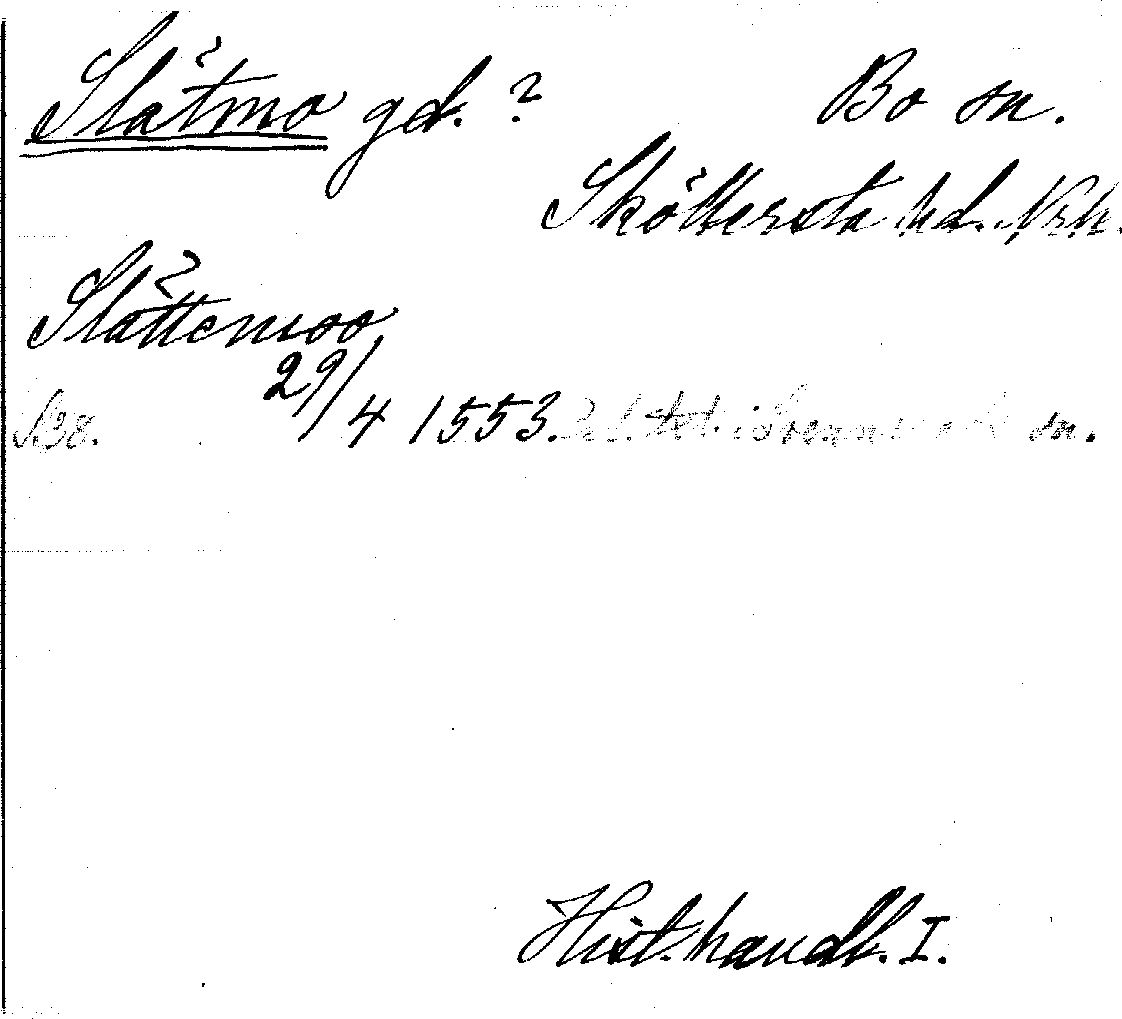 Slätmo gd. ? Bo sn.
Sköllersta hd. Nrk.
Slättemoo
S 38. 29/4 1553. sn.
Hist. handl. I.